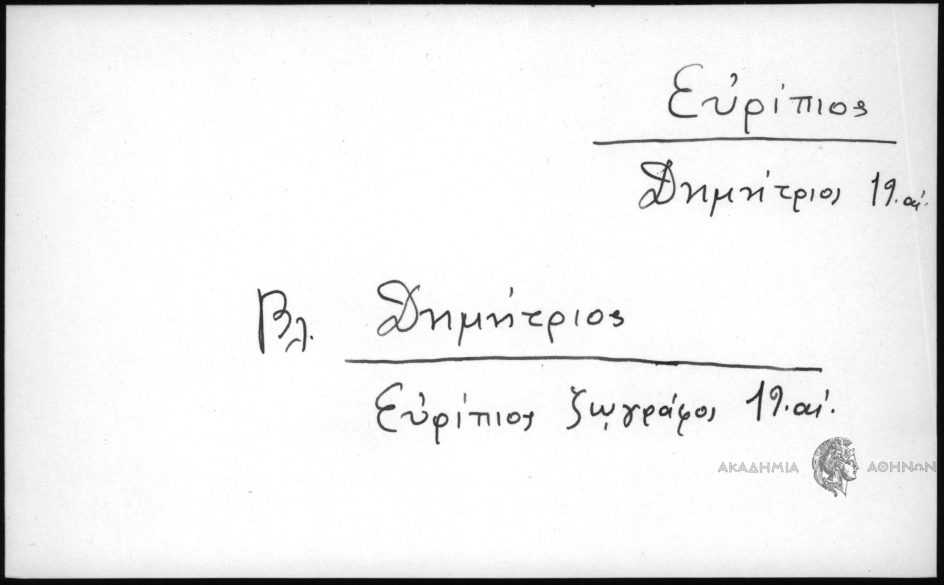 Εὐρίπιος
Δημήτριος 19. αἰ.
Βλ. Δημήτριος
Εὐρίπιος ζῳγράφος 19. αἰ.
ΑΚΑΔΗΜΙΑ ΑΘΗΝΩΝ